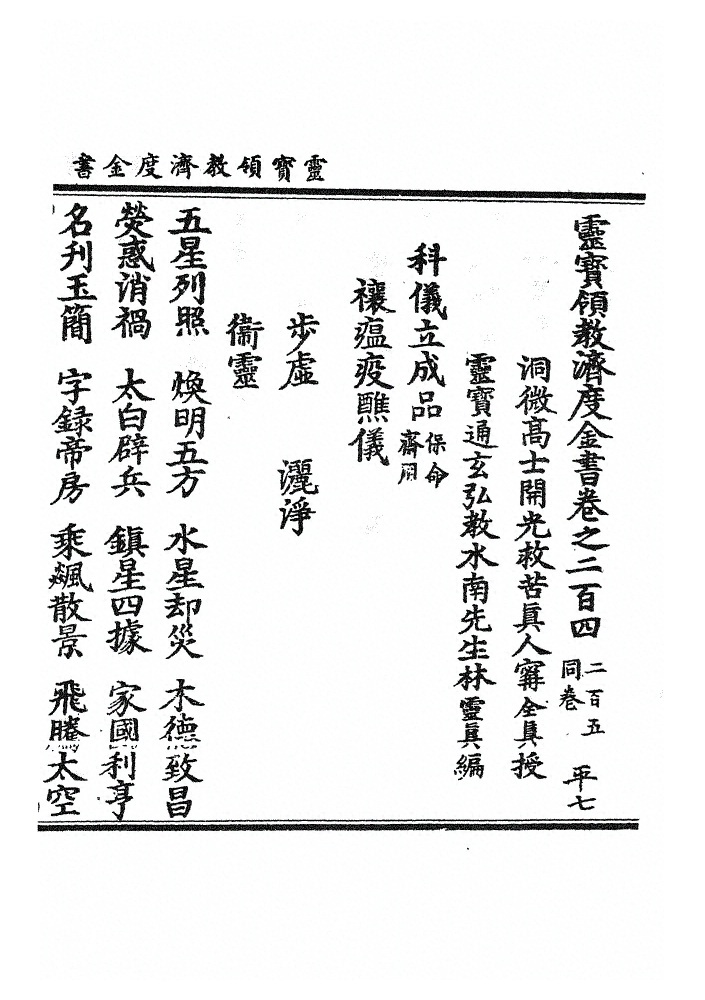 靈寶領教濟度金書
靈寶領教濟度金書卷之二百四 二百五同卷 平七
洞微高士開光救苦眞人甯全眞授
靈寶通玄弘教水南先生林靈眞編
科儀立成品 保命齋用
禳瘟疫醮儀
步虛 灑淨
衞靈
五星列照 煥明五方 水星却災 木德致昌
熒惑消禍 太白辟兵 鎮星四據 家國利亨
名刋玉簡 字録帝房 乘飈散景 飛騰太空